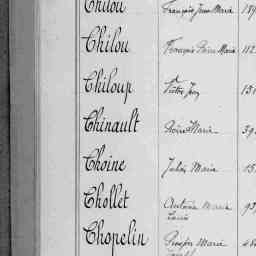 Chilou François Jean Marie 189
Chilou François Pierre Marie 112
Chiloup Victor Jean 131
Chinault Pierre Marie 39
Choine Jules Marie 15
Chollet Antoine Marie 93
Louis
Chopelin Prosper Marie 48